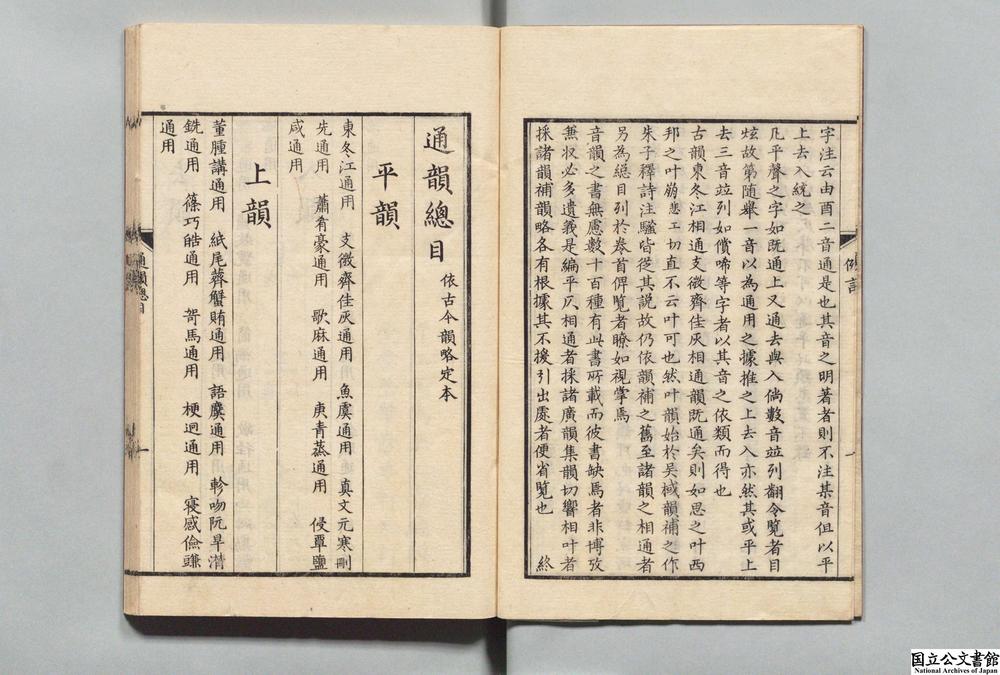 字注云由酉二音通是也其音之明著者則不注某音但以平
上去入統之
凡平聲之字如既通上又通去與入倘數音竝列翻令覽者目
炫故第随舉一音以為通用之據推之上去入亦然其或平上
去三音竝列如償唏等字者以其音之依類而得也
古韻東冬江相通支微齊佳灰相通韻既通矣則如思之叶西
邦之叶崩悲工切直不云叶可也然叶韻始於吴棫韻補之作
朱子釋詩注騷皆從其説故仍依韻補之舊至諸韻之相通者
另為緫目列於卷首俾覽者瞭如視掌焉
音韻之書無慮數十百種有此書所載而彼書缺焉者非博攷
無収必多遺義是編平仄相通者採諸廣韻集韻切響相叶者
採諸韻補韻略各有根據其不援引出處者便省覽也 終
例言
一
通韻總目 依古今韻略定本
平韻
東冬江通用 支微齊佳灰通用 魚虞通用 真文元寒刪
先通用 蕭肴豪通用 歌麻通用 庚青蒸通用 侵覃鹽
咸通用
上韻
董腫講通用 紙尾薺蟹賄通用 語麌通用 軫吻阮旱潸
銑通用 篠巧皓通用 哿馬通用 梗迥通用 寑感儉豏
通用
通韻總目
一
国立公文書館
National Archives of Japan